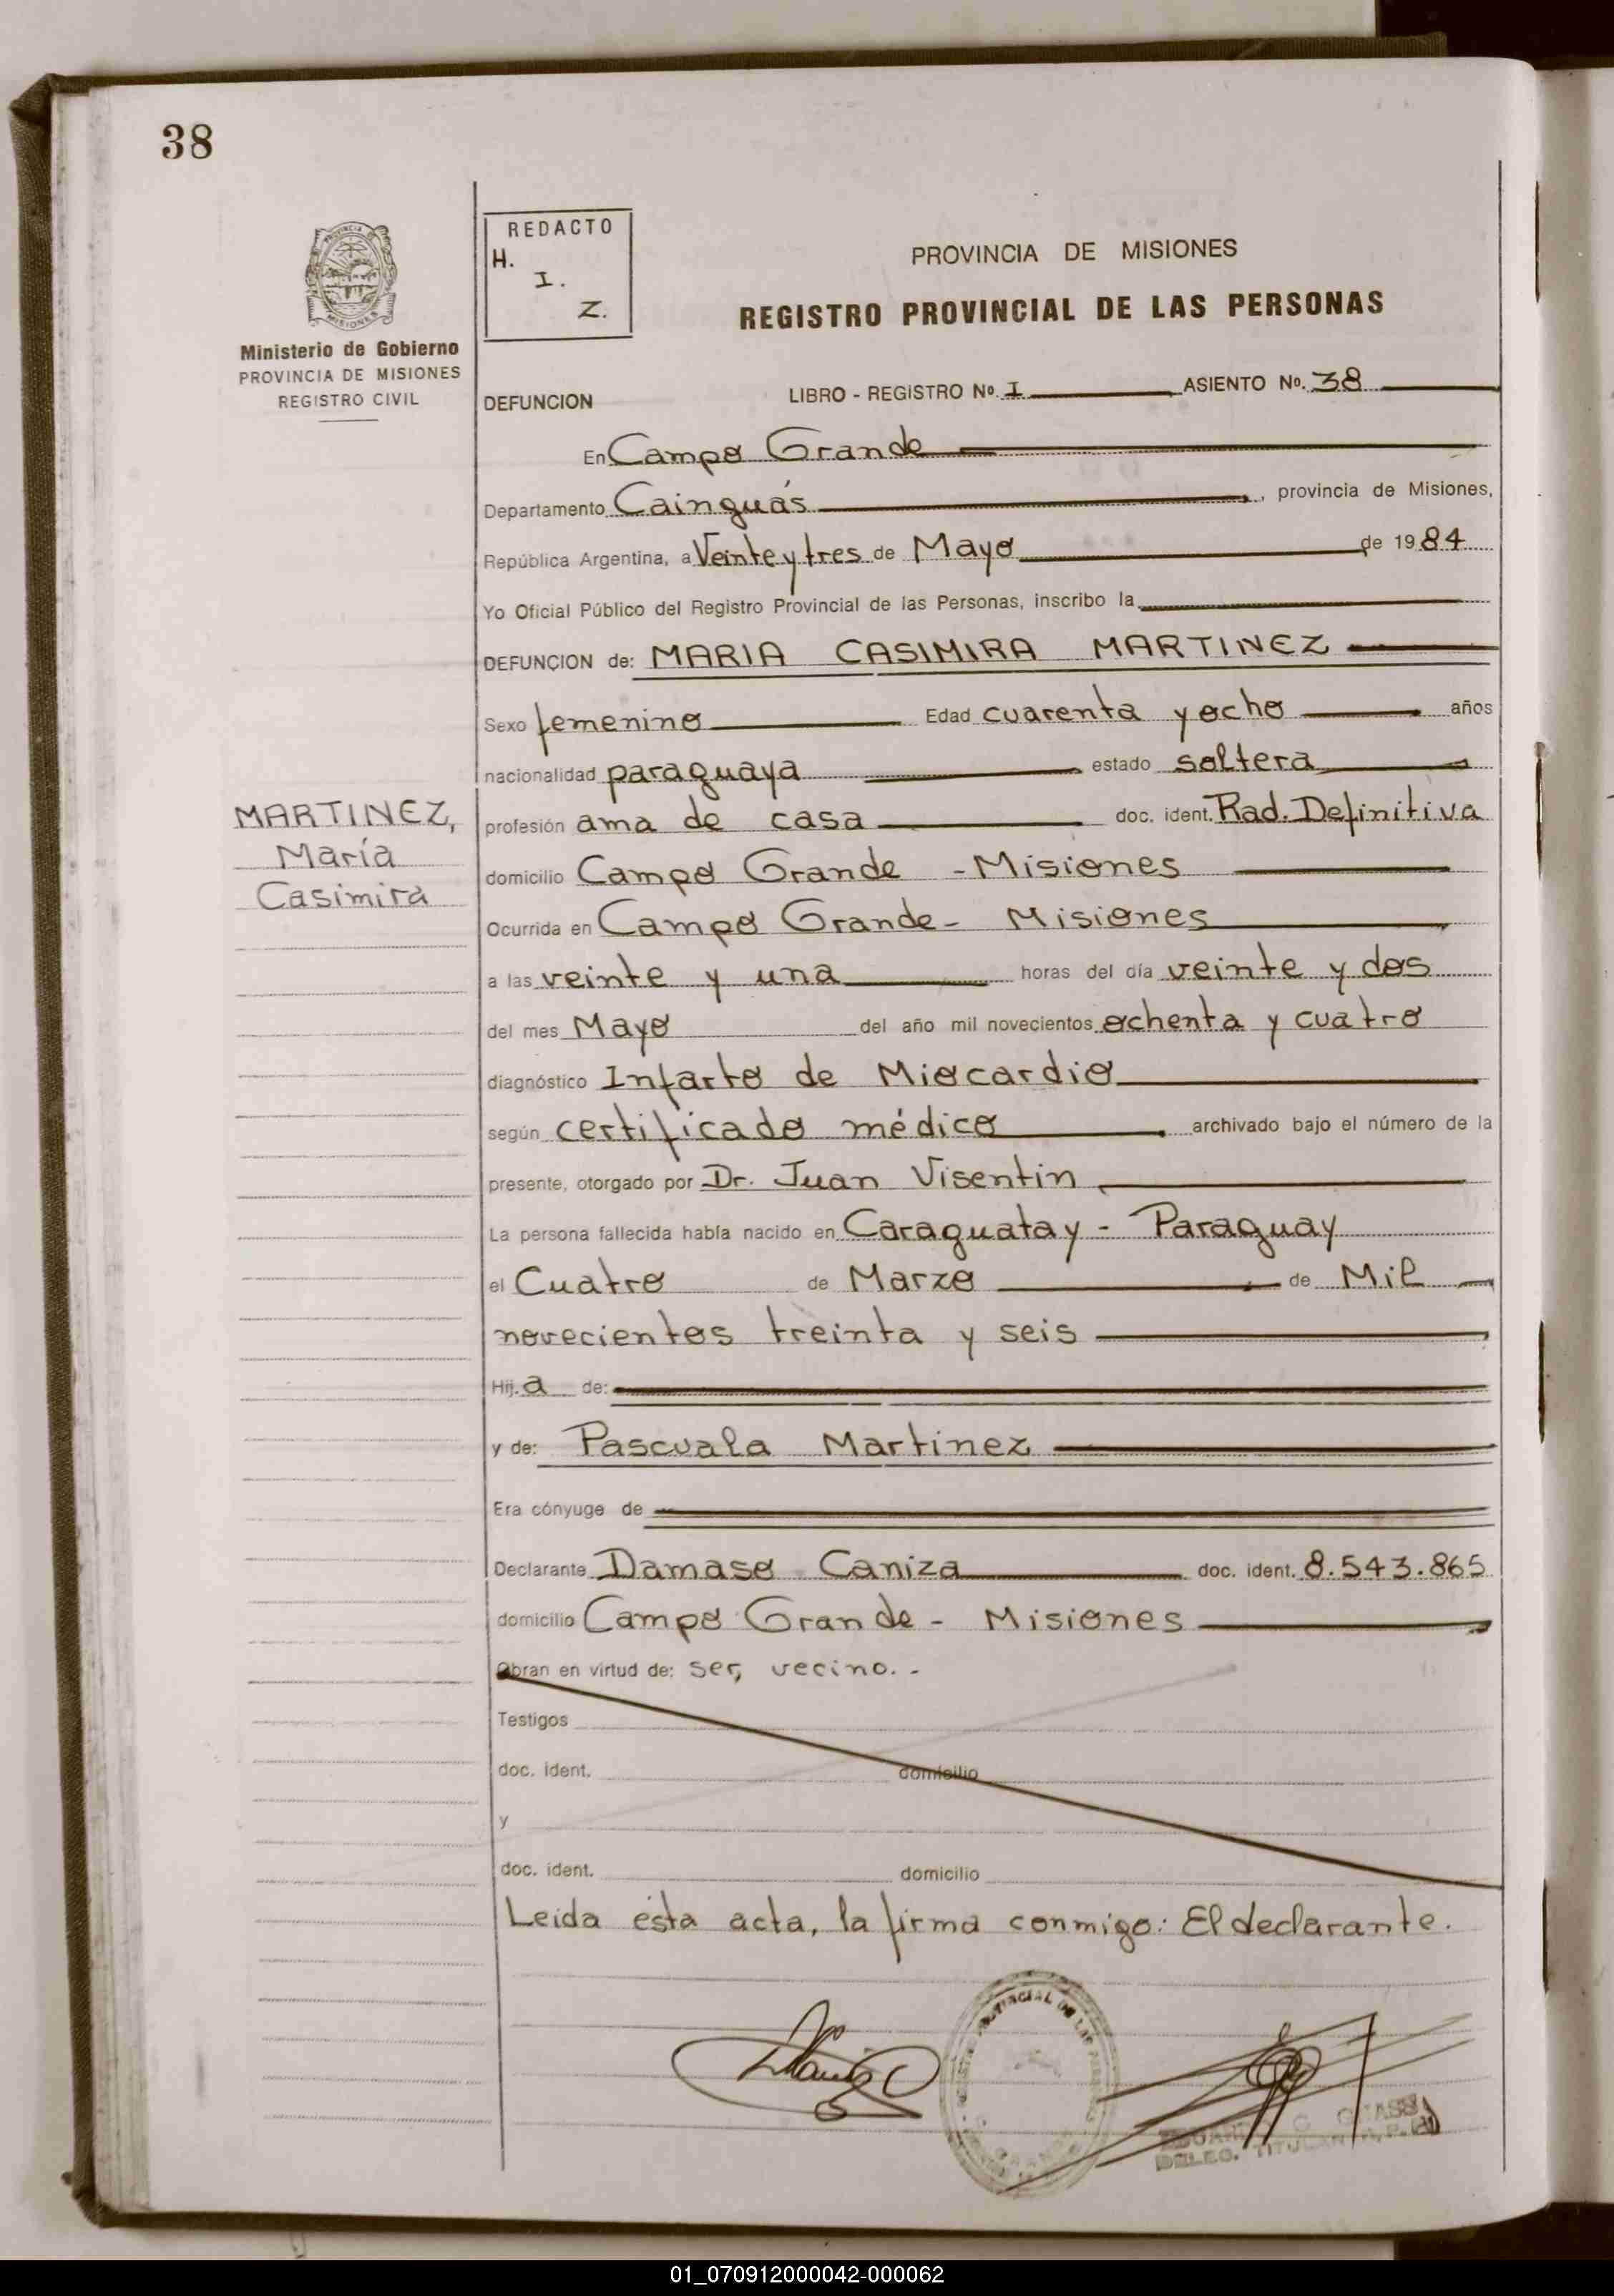 38
REDACTO
H.
I.
Z.
PROVINCIA DE MISIONES
REGISTRO PROVINCIAL DE LAS PERSONAS
MISIONES
Ministerio de Gobierno
PROVINCIA DE MISIONES
REGISTRO CIVIL
DEFUNCION LIBRO - REGISTRO Nº. I ASIENTO Nº. 38
En Campo Grande
Departamento Cainguás, provincia de Misiones,
República Argentina, a Veinte y tres de Mayo de 1984
Yo Oficial Público del Registro Provincial de las Personas, inscribo la
DEFUNCION de: MARIA CASIMIRA MARTINEZ
Sexo femenino Edad cuarenta y ocho años
nacionalidad paraguaya estado soltera
MARTINEZ,
María
Casimira
profesión ama de casa doc. ident. Rad. Definitiva
domicilio Campo Grande - Misiones
Ocurrida en Campo Grande - Misiones
a las veinte y una horas del día veinte y dos
del mes Mayo del año mil novecientos ochenta y cuatro
diagnóstico Infarto de Miocardio
según certificado médico archivado bajo el número de la
presente, otorgado por Dr. Juan Visentin
La persona fallecida había nacido en Caraguatay - Paraguay
el Cuatro de Marzo de Mil
novecientos treinta y seis
Hij. a de:
y de: Pascuala Martinez
Era cónyuge de
Declarante Damaso Caniza doc. ident. 8.543.865
domicilio Campo Grande - Misiones
Obran en virtud de: ser, vecino. -
Testigos
doc. ident. domicilio
y
doc. ident. domicilio
Leida ésta acta, la firma conmigo: El declarante.
DELEG. TITULAR
01_070912000042-000062